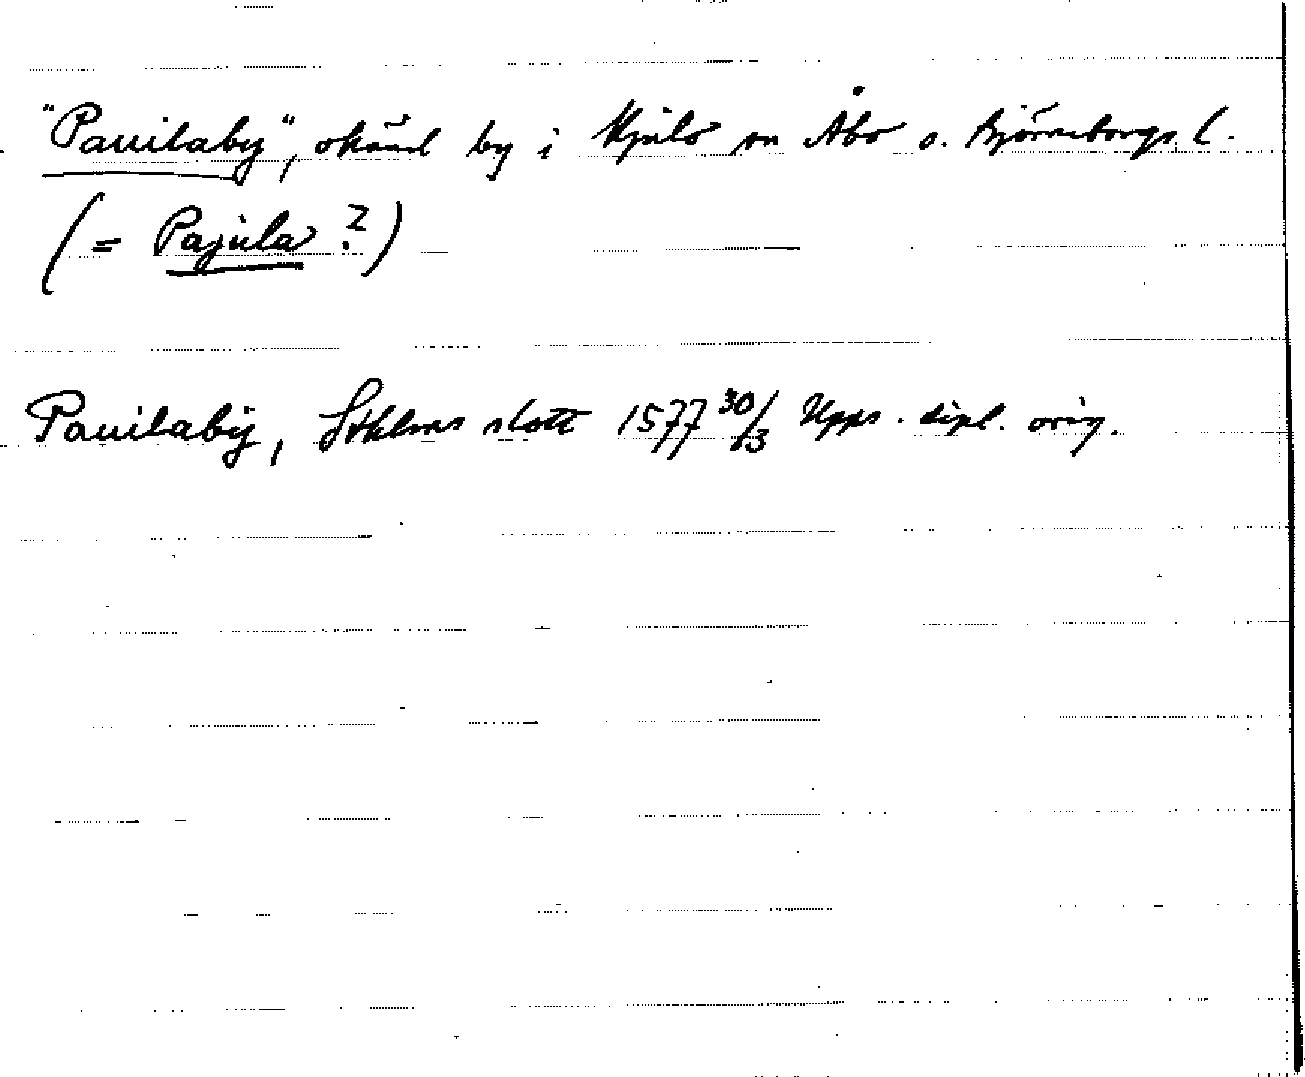 "Pauilaby", okänd by i Kjulo sn Åbo o. Björneborgs l.
(= Pajula ?)
Pauilabÿ, Sthlms slott 1577 30/3 Upps. dipl. orig.